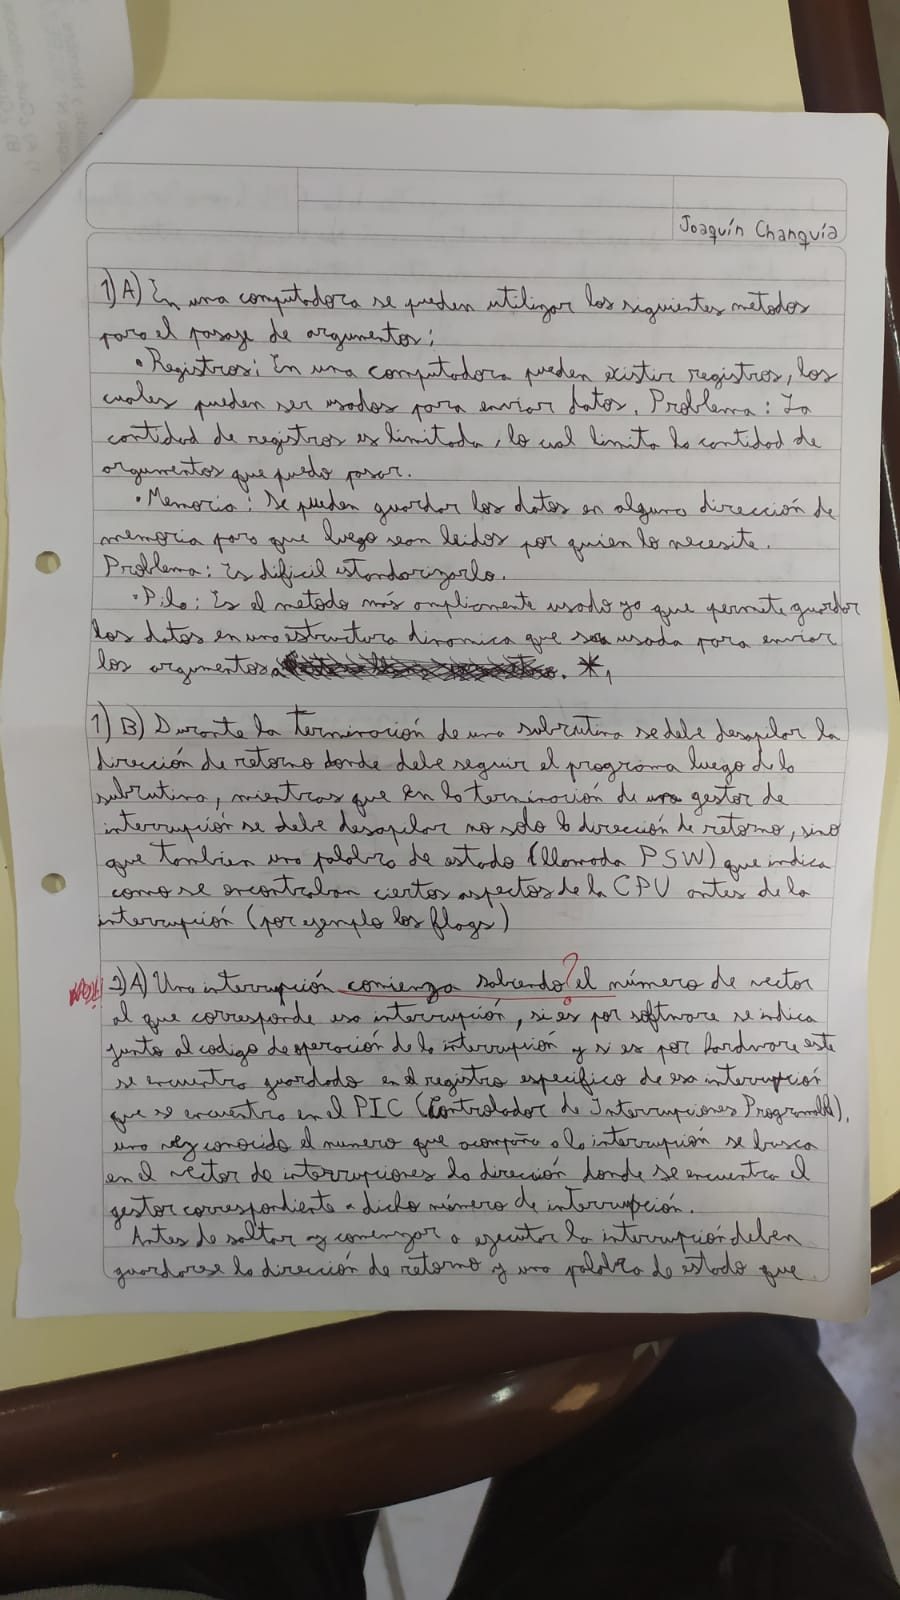 Joaquín Changuía
1) A) En una computadora se pueden utilizar los siguientes metodos
para el pasaje de argumentos:
• Registros: En una computadora pueden existir registros, los
cuales pueden ser usados para enviar datos. Problema: La
cantidad de registros es limitada, lo cual limita la cantidad de
argumentos que puedo pasar.
• Memoria: Se pueden guardar los datos en alguna dirección de
memoria para que luego sean leidos por quien lo necesite.
Problema: Es dificil estandarizarlo.
• Pila: Es el metodo más ampliamente usado ya que permite guardar
los datos en una estructura dinamica que sea usada para enviar
los argumentos . *1
1) B) Durante la terminación de una subrutina se debe desapilar la
dirección de retorno donde debe seguir el programa luego de la
subrutina, mientras que en la terminación de un gestor de
interrupción se debe desapilar no solo la dirección de retorno, sino
que tambien una palabra de estado (llamada PSW) que indica
como se encontraban ciertos aspectos de la CPU antes de la
interrupción (por ejemplo los flags)
2) A) Una interrupción comienza sabiendo ? el número de vector
al que corresponde esa interrupción, si es por software se indica
junto al codigo de operación de la interrupción y si es por hardware este
se encuentra guardado en el registro especifico de esa interrupción
que se encuentra en el PIC (Controlador de Interrupciones Programable),
una vez conocido el numero que acompaña a la interrupción se busca
en el vector de interrupciones la dirección donde se encuentra el
gestor correspondiente a dicho número de interrupción.
Antes de saltar y comenzar a ejecutar la interrupción deben
guardarse la dirección de retorno y una palabra de estado que